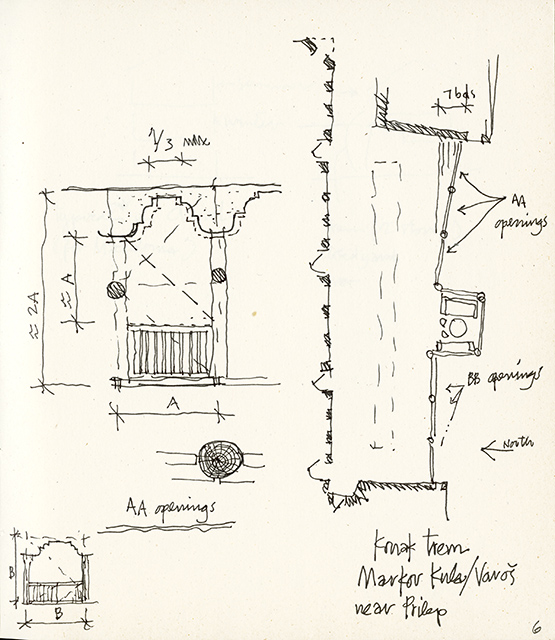 1/3 max
7 bds
AA
openings
≈ 2A
≈ A
A
BB openings
North
AA openings
B
B
Konak trem
Markov Kule/Varoš
near Prilep
6